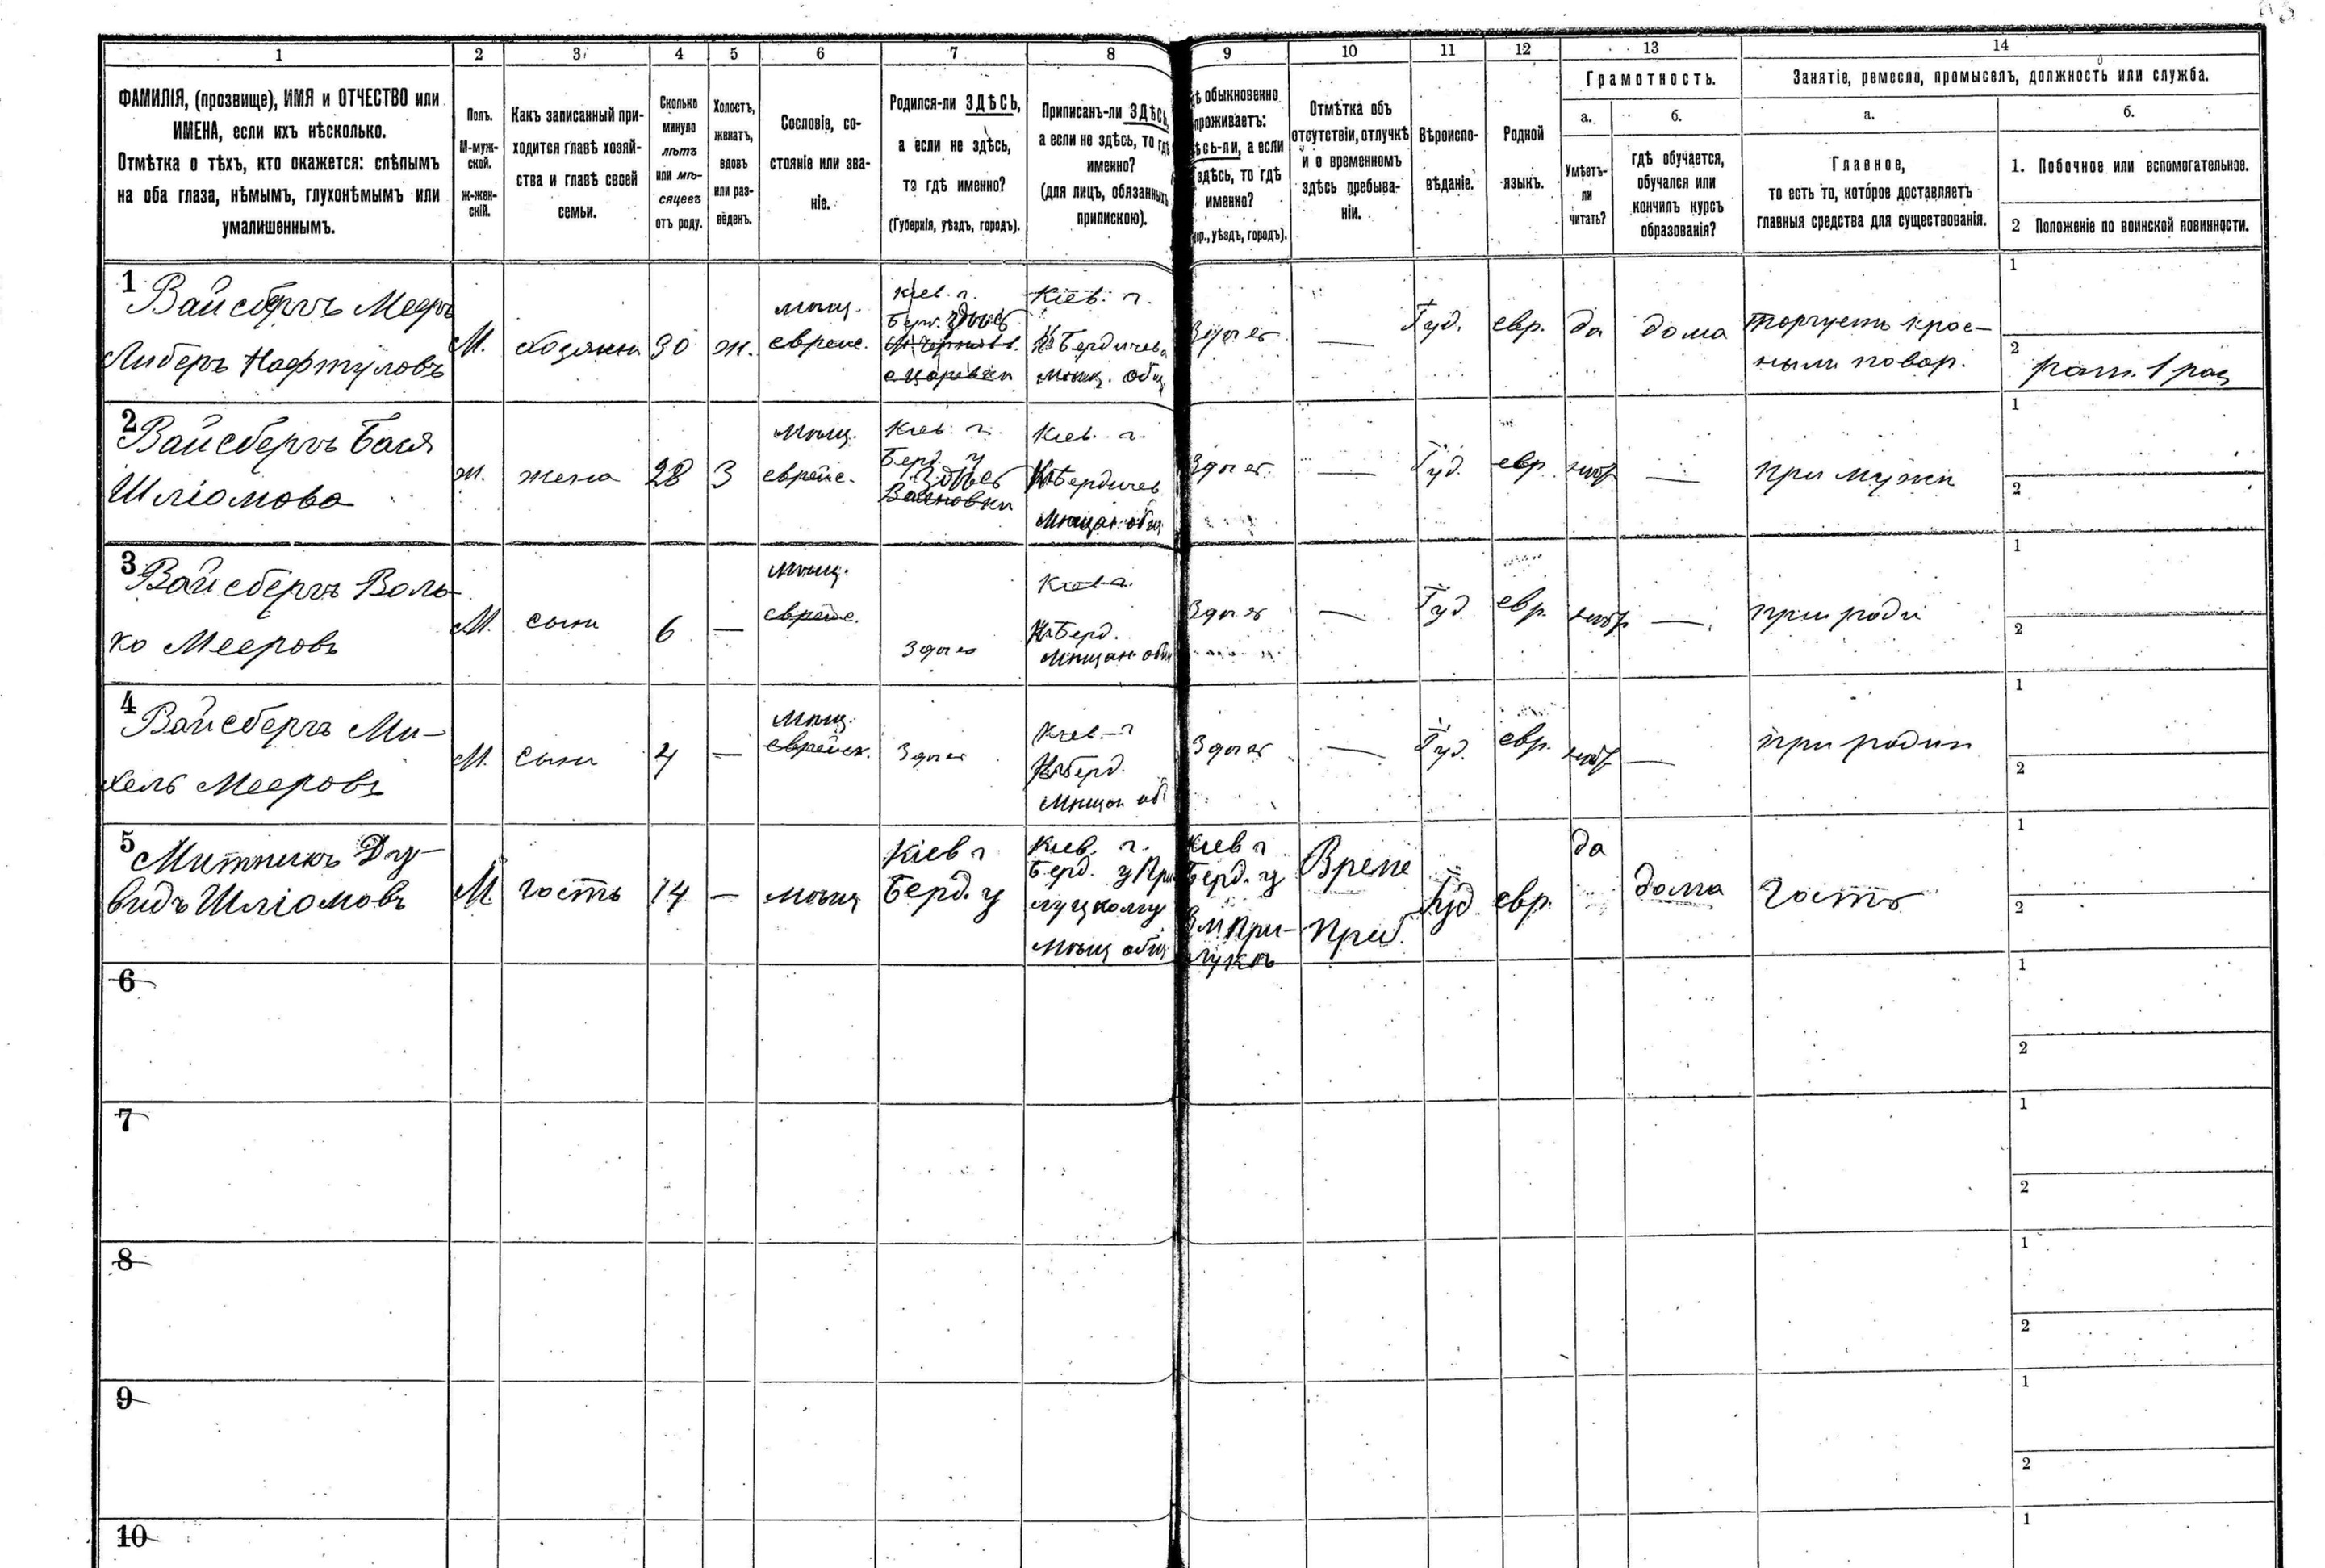 1 2 3 4 5 6 7 8 9 10 11 12 13 14
ФАМИЛІЯ, (прозвище), ИМЯ и ОТЧЕСТВО или
ИМЕНА, если ихъ нѣсколько.
Отмѣтка о тѣхъ, кто окажется: слѣпымъ
на оба глаза, нѣмымъ, глухонѣмымъ или
умалишеннымъ.
Полъ.
М-муж-
ской.
ж-жен-
скій.
Какъ записанный при-
ходится главѣ хозяй-
ства и главѣ своей
семьи.
Сколько
минуло
лѣтъ
или мѣ-
сяцевъ
отъ роду.
Холостъ,
женатъ,
вдовъ
или раз-
веденъ.
Сословіе, со-
стояніе или зва-
ніе.
Родился-ли ЗДѢСЬ,
а если не здѣсь,
то гдѣ именно?
(Губернія, уѣздъ, городъ).
Приписанъ-ли ЗДѢСЬ,
а если не здѣсь, то гдѣ
именно?
(для лицъ, обязанныхъ
припискою).
ѣ обыкновенно
проживаетъ:
ѣсь-ли, а если
здѣсь, то гдѣ
именно?
р., уѣздъ, городъ).
Отмѣтка объ
отсутствіи, отлучкѣ
и о временномъ
здѣсь пребыва-
ніи.
Вѣроиспо-
вѣданіе.
Родной
языкъ.
Грамотность.
а.
Умѣетъ-
ли
читать?
б.
гдѣ обучается,
обучался или
кончилъ курсъ
образованія?
Занятіе, ремесло, промыселъ, должность или служба.
а.
Главное,
то есть то, которое доставляетъ
главныя средства для существованія.
б.
1. Побочное или вспомогательное.
2 Положеніе по воинской повинности.
1
Вайсбергъ Мееръ
Либеръ Нафтуловъ
М.
хозяинъ
30
ж.
мѣщ.
еврейс.
Кіев. г.
здѣсь
Кіев. г.
Бердичев.
Мѣщ. общ
Здѣсь
—
Іуд.
евр.
да
дома
Торгуетъ крас-
ными товар.
1
2
рат. 1 раз
2
Вайсбергъ Бася
Шліомова
ж.
жена
28
З
мѣщ.
еврейс.
Кіев. г.
Берд. у
Здѣсь
Кіев. г.
Бердичев
Мѣщан общ
Здѣсь
—
Іуд.
евр
нѣт
—
при мужѣ
1
2
3
Вайсбергъ Воль-
ко Мееровъ
М.
сынъ
6
—
мѣщ.
еврейс.
Здѣсь
Кіев г.
Берд.
Мѣщан общ
Здѣсь
—
Іуд
евр.
нѣт
—
при роди
1
2
4
Вайсбергъ Ми-
хель Мееровъ
М.
сынъ
4
—
мѣщ.
еврейск.
Здѣсь
Кіев. г
Берд.
Мѣщан об
Здѣсь
—
Іуд.
евр.
нѣт
—
при родит
1
2
5
Митникъ Ду-
видъ Шліомовъ
М
гость
14
—
мѣщ
Кіев г
Берд. у
Кіев. г.
Берд. у При
луцкому
мѣщ общ
Кіев г
Берд. у
в м При-
лукѣ
Време
Преб.
Іуд
евр.
да
дома
Гость
1
2
6
1
2
7
1
2
8
1
2
9
1
2
10
1